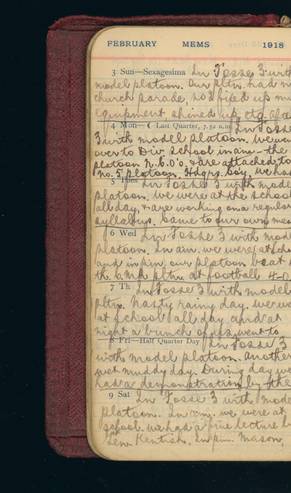 FEBRUARY MEMS 1918
3 Sun—Sexagesima In Fosse 3 with
model platoon. Our pltn. had no
church parade, so I fixed up my
equipment, shined up etc.
4 Mon—☾ Last Quarter, In Fosse
3 with model platoon. We went
over to Div. school in a.m. the
platoon N.C.O's. & are attached to
No. 5 platoon. Hdqrs. boy, we
5 Tues In Fosse 3 with model
platoon. We were at the school
all day, & are working on a regular
syllabus. Came to our own mess
6 Wed In Fosse 3 with model
platoon. In a.m. we were at
and in p.m. our platoon beat
the pltn at football 4-0
7 Th In Fosse 3 with model
pltn. Nasty rainy day. We were
at school all day and at
night a bunch of us went to
8 Fri—Half Quarter Day In Fosse 3
with model platoon. Another
wet muddy day. During day we
had a demonstration by the
9 Sat In Fosse 3 with model
platoon. In a.m. we were at
school. We had a fine lecture by
Gen. Kentish. In p.m. Mason,